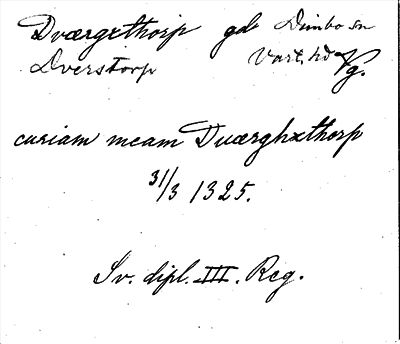 Dværgxthorp gdr Dimbo sn
Dverstorp Vart. hd Vg.
curiam meam Duærghxthorp
31/3 1325.
Sv. dipl. III. Reg.